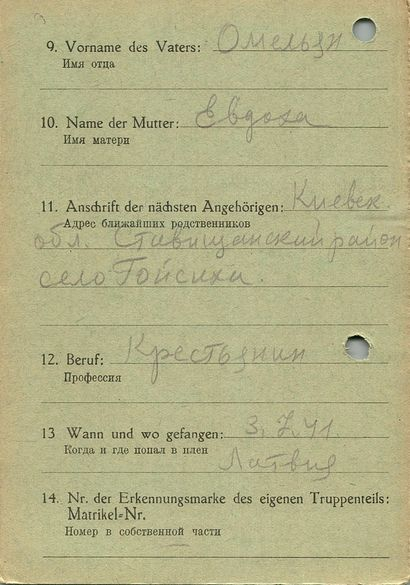 9. Vorname des Vaters: Омельян
Имя отца
10. Name der Mutter: Евдоха
Имя матери
11. Anschrift der nächsten Angehörigen: Киевск.
Адрес ближайших родственников
обл. Ставищанский район
село Гойсиха.
12. Beruf: Крестьянин
Профессия
13 Wann und wo gefangen: 3.7.41.
Когда и где попал в плен
Латвия
14. Nr. der Erkennungsmarke des eigenen Truppenteils:
Matrikel-Nr.
Номер в собственной части